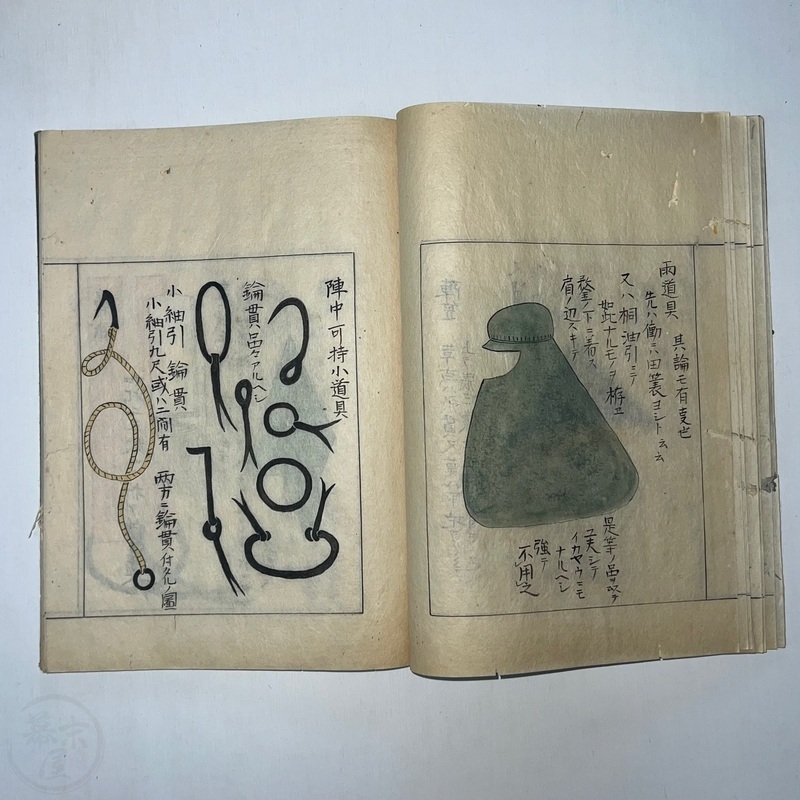 雨道具 其論モ有事也
先ハ働ニハ田簑ヨシト云云
又ハ桐油引ニテ
如此ナルモノヲ拵ヱ
鍪ノ下ニ着ス
肩ノ辺スキテ
是等ノ品
イカヤウニモ
ナルヘシ
強テ
不用之
陣中可持小道具
鑰貫品々アルヘシ
小紬引 鑰貫
小紬引九尺或ハ二间有 両方ニ鑰貫付タルノ圖
京
屋